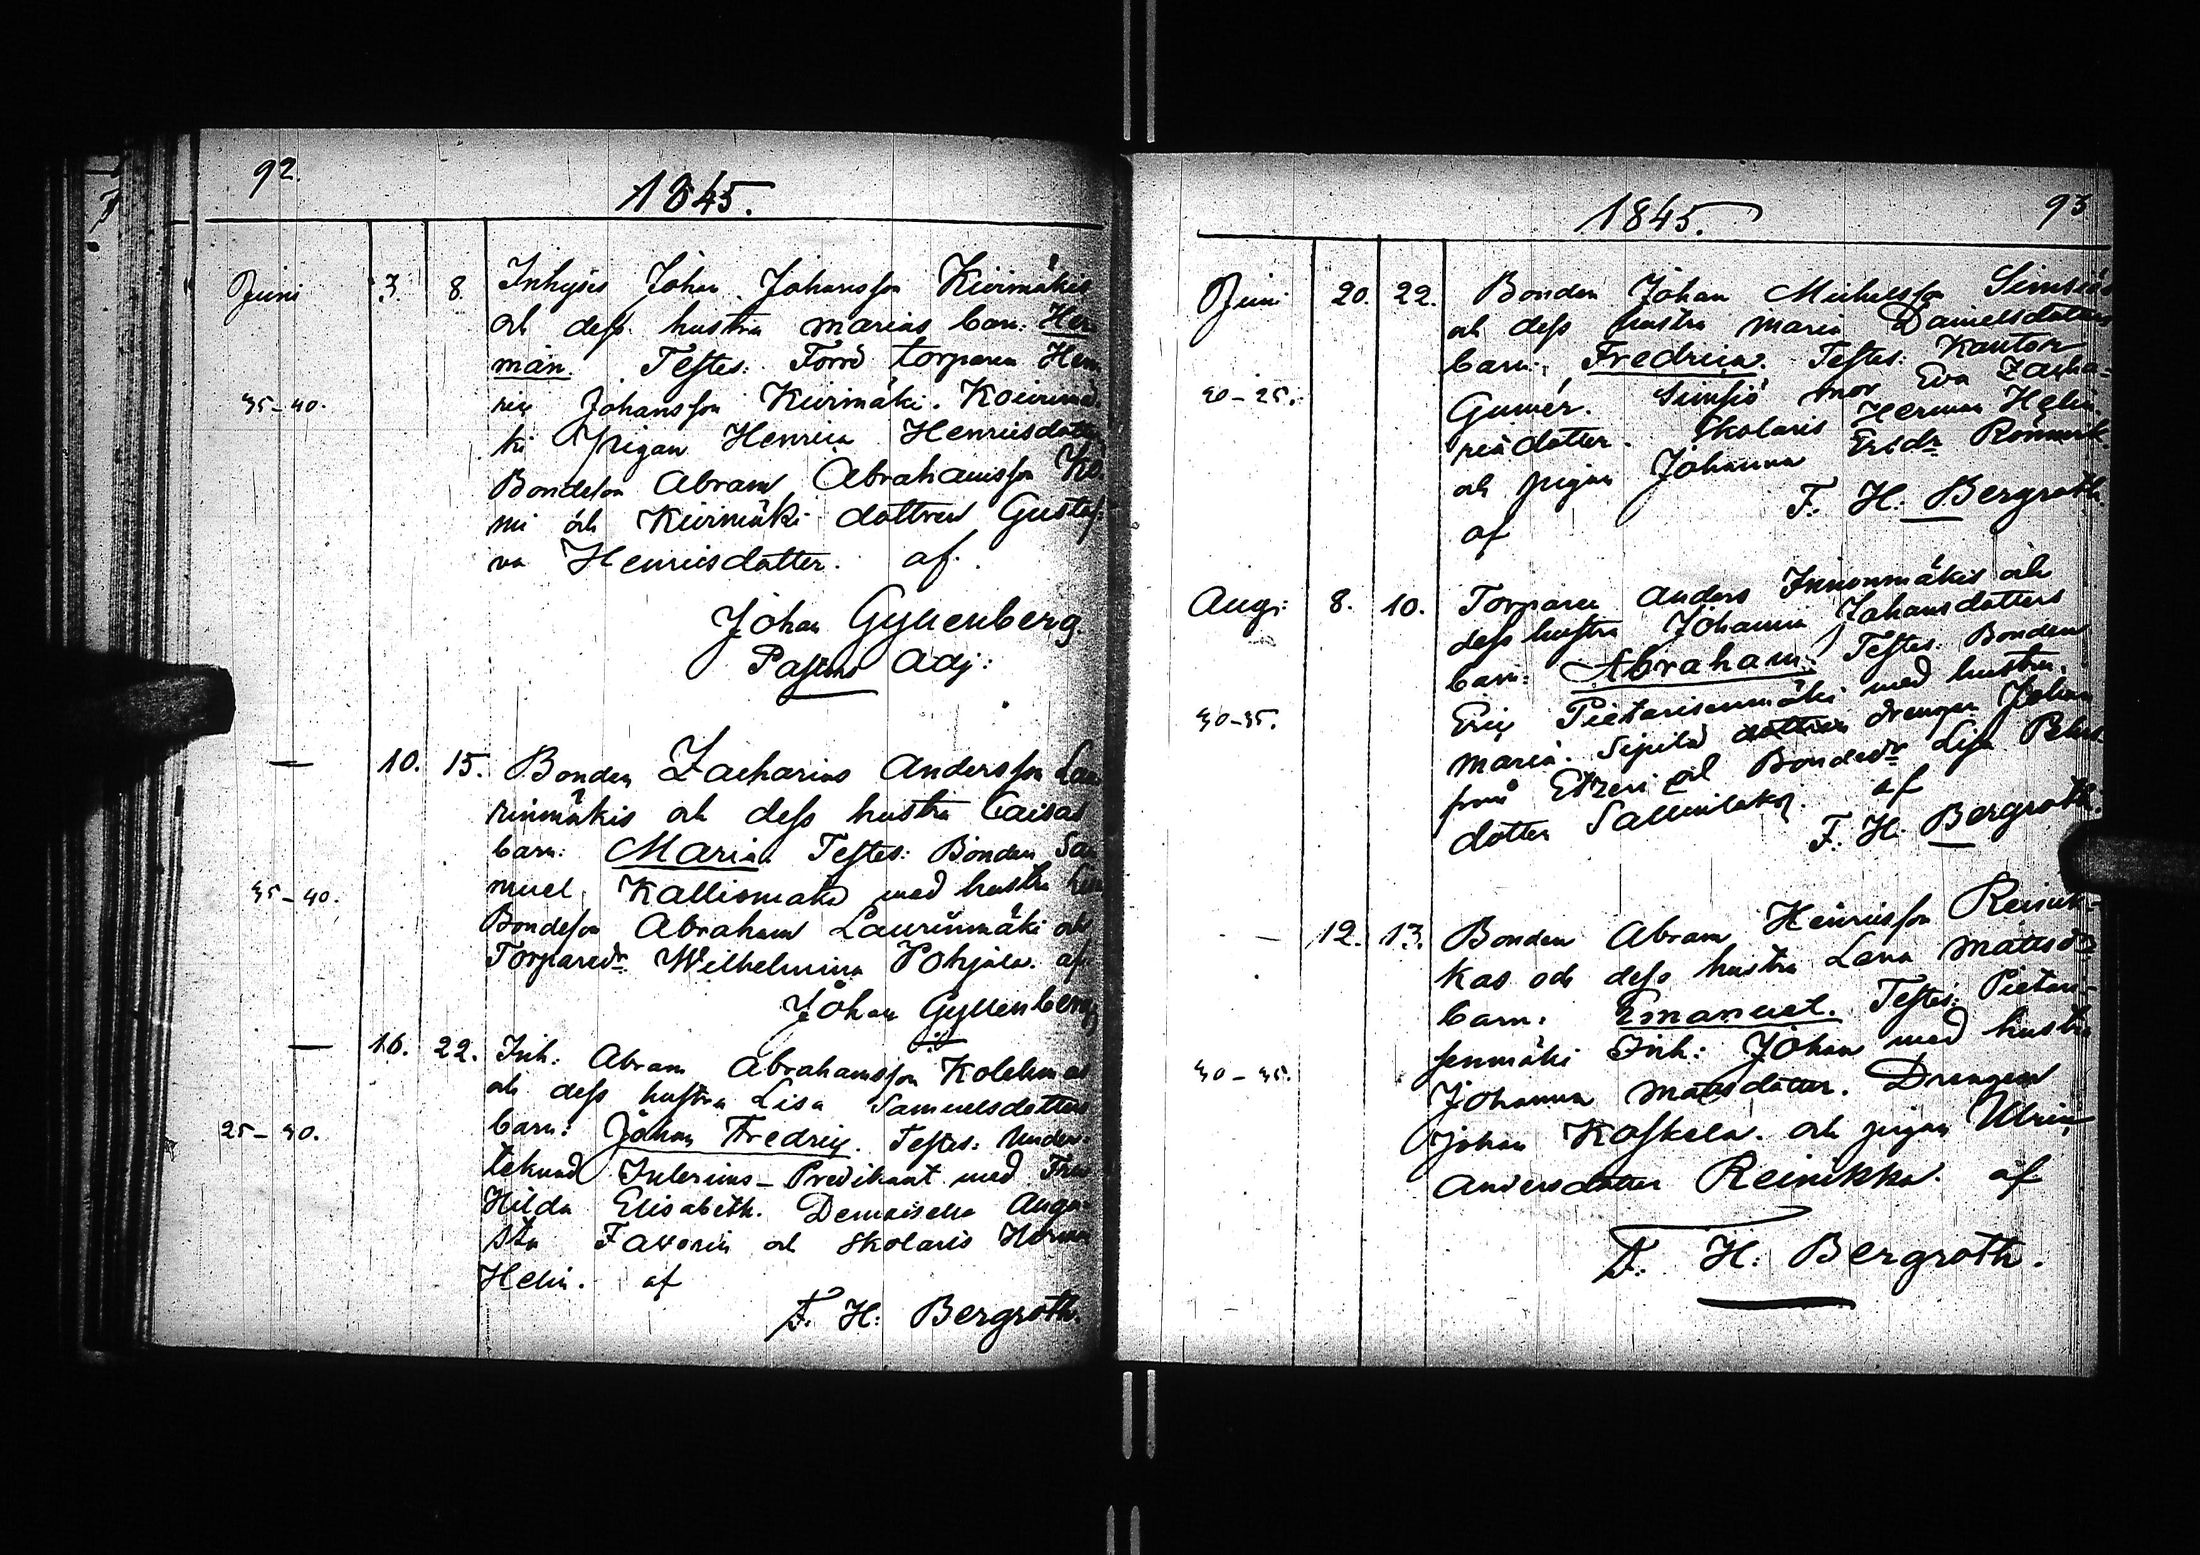 92.
1845.
Juni 3. 8. Inhyses Johan Johansson Kivimäkis
och dess hustru Marias barn: Her
man. Testes: Förrd torparen Hen
ric Johansson Kivimäki. Koivumä
35-40.
ki pigan Henrica Henricsdotter
Bondeson Abram Abrahamsson Ko
mi och Kivimäki dottren Gusta
va Henricsdotter. af.
Johan Gyllenberg.
Pastors Adj:
— 10. 15. Bonden Zacharias Andersson Lau
rinmäkis och dess hustru Caisas
barn: Maria. Testes: Bonden Sa
muel Kallismaka med hustru
35-40.
Bondeson Abraham Laurinmäki och
Torparedr Wilhelmina Pohjala. af
Johan Gyllenberg
— 16. 22. Inh: Abram Abrahamsson
och dess hustru Lisa Samuelsdotters
barn: Johan Fredric. Testes: Under-
25-30.
teknad Interims-Predikant med Fru
Hilda Elisabeth. Demoiselle Augu
sta Favorin och Skolaris Herma
Helin. af
F. H: Bergroth.
93
1845.
Juni 20. 22. Bonden Johan Michelsson Simsiös
och dess hustru Maria Danielsdotters
barn: Fredrica. Testes: Kantor
20-25.
Gumér. Simsiö mor Eva Zacha-
riædotter. Skolaris Herman Helin
och pigan Johanna Ericdr
af F. H: Bergroth.
Aug: 8. 10. Torparen Anders Innonmäkis och
dess hustru Johanna Johansdotters
barn: Abraham. Testes: Bonden
Eric Pietarisenmäki med hustru
30-35.
Maria. Sipilä drengen Johan
från Etzeri och Bondedr Lisa
dotter af
F. H. Bergroth.
— 12. 13. Bonden Abram Henricsson Reinik-
kas och dess hustru Lena Mattsdrs
barn: Emanuel. Testes: Pietari-
senmäki Inh: Johan med hustru
30-35.
Johanna Mattsdotter. Drengen
Johan Koskela. och pigan Ulrica
Andersdotter Reinikka. af
F. H: Bergroth.